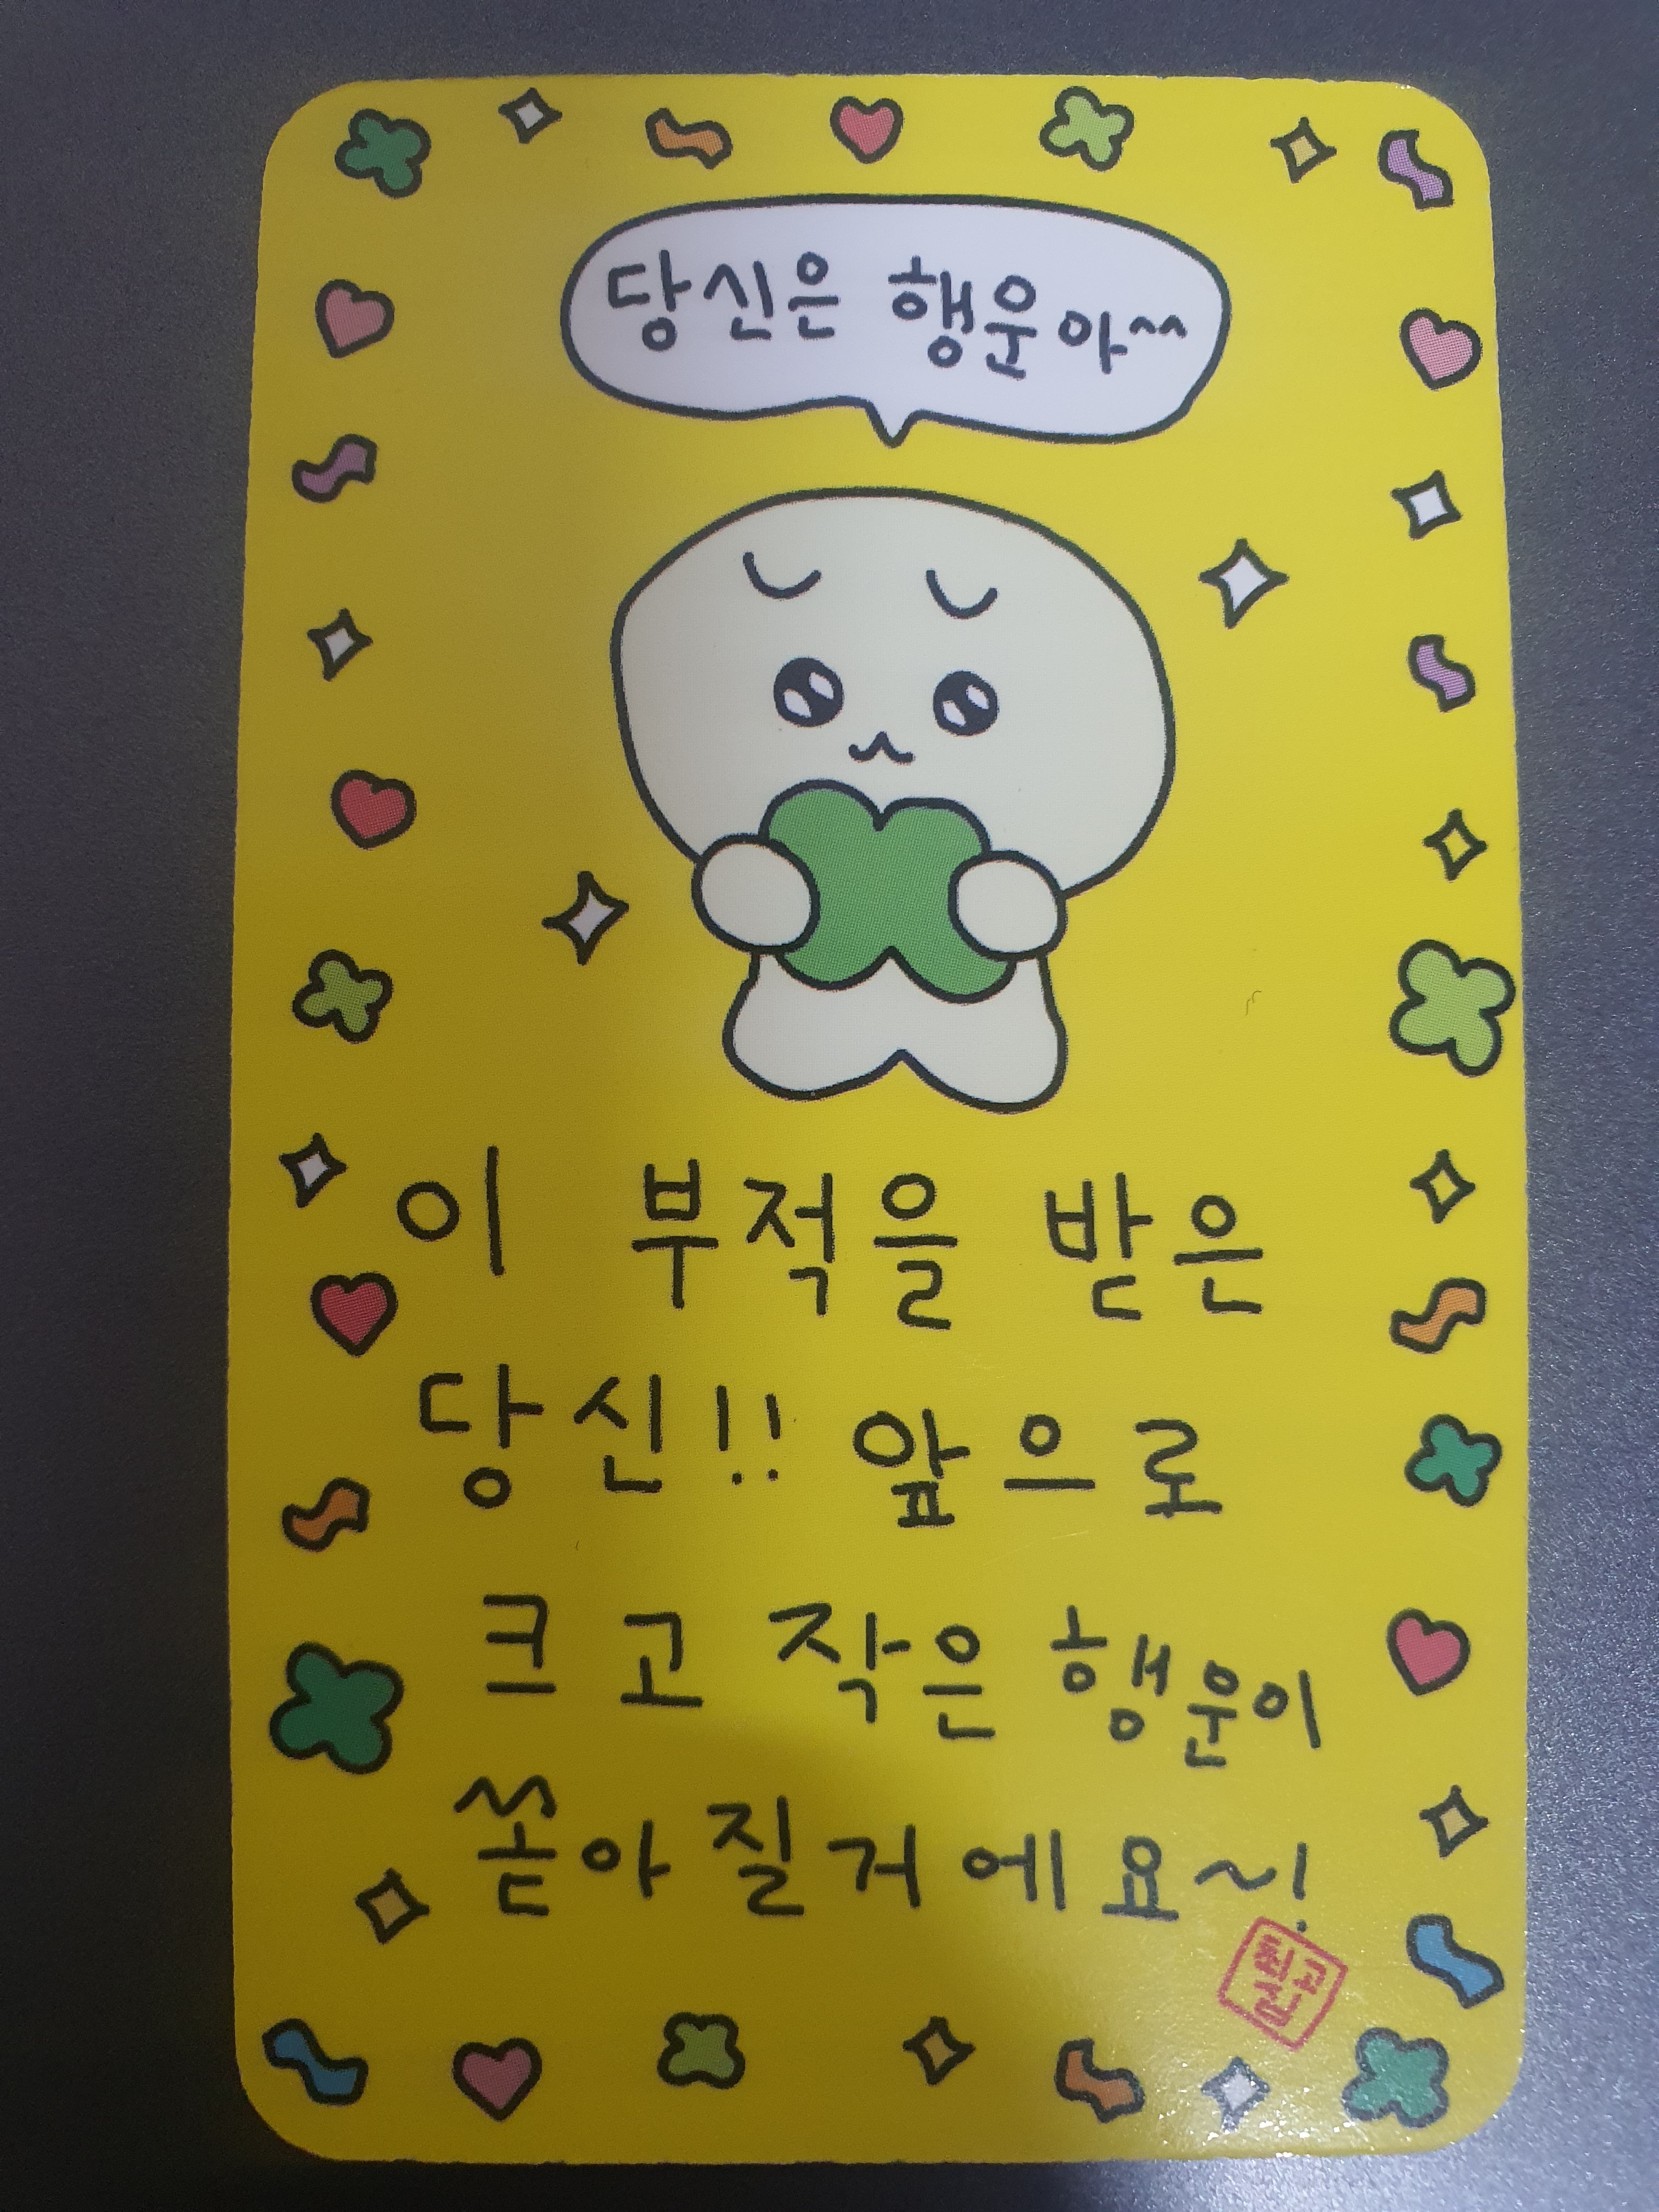 당신은 행운아^^
이 부적을 받은
당신!! 앞으로
크고 작은 행운이
쏟아질거에요~!
최고
심